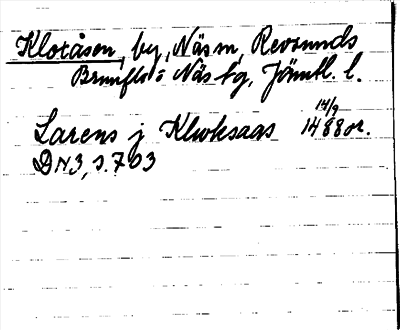 Klotåsen, by, Näs sn, Revsunds
Brunflo o Näs tg, Jämtl. l.
14/9
Larens j Klwksaas 1488 or.
DN 3, s. 703